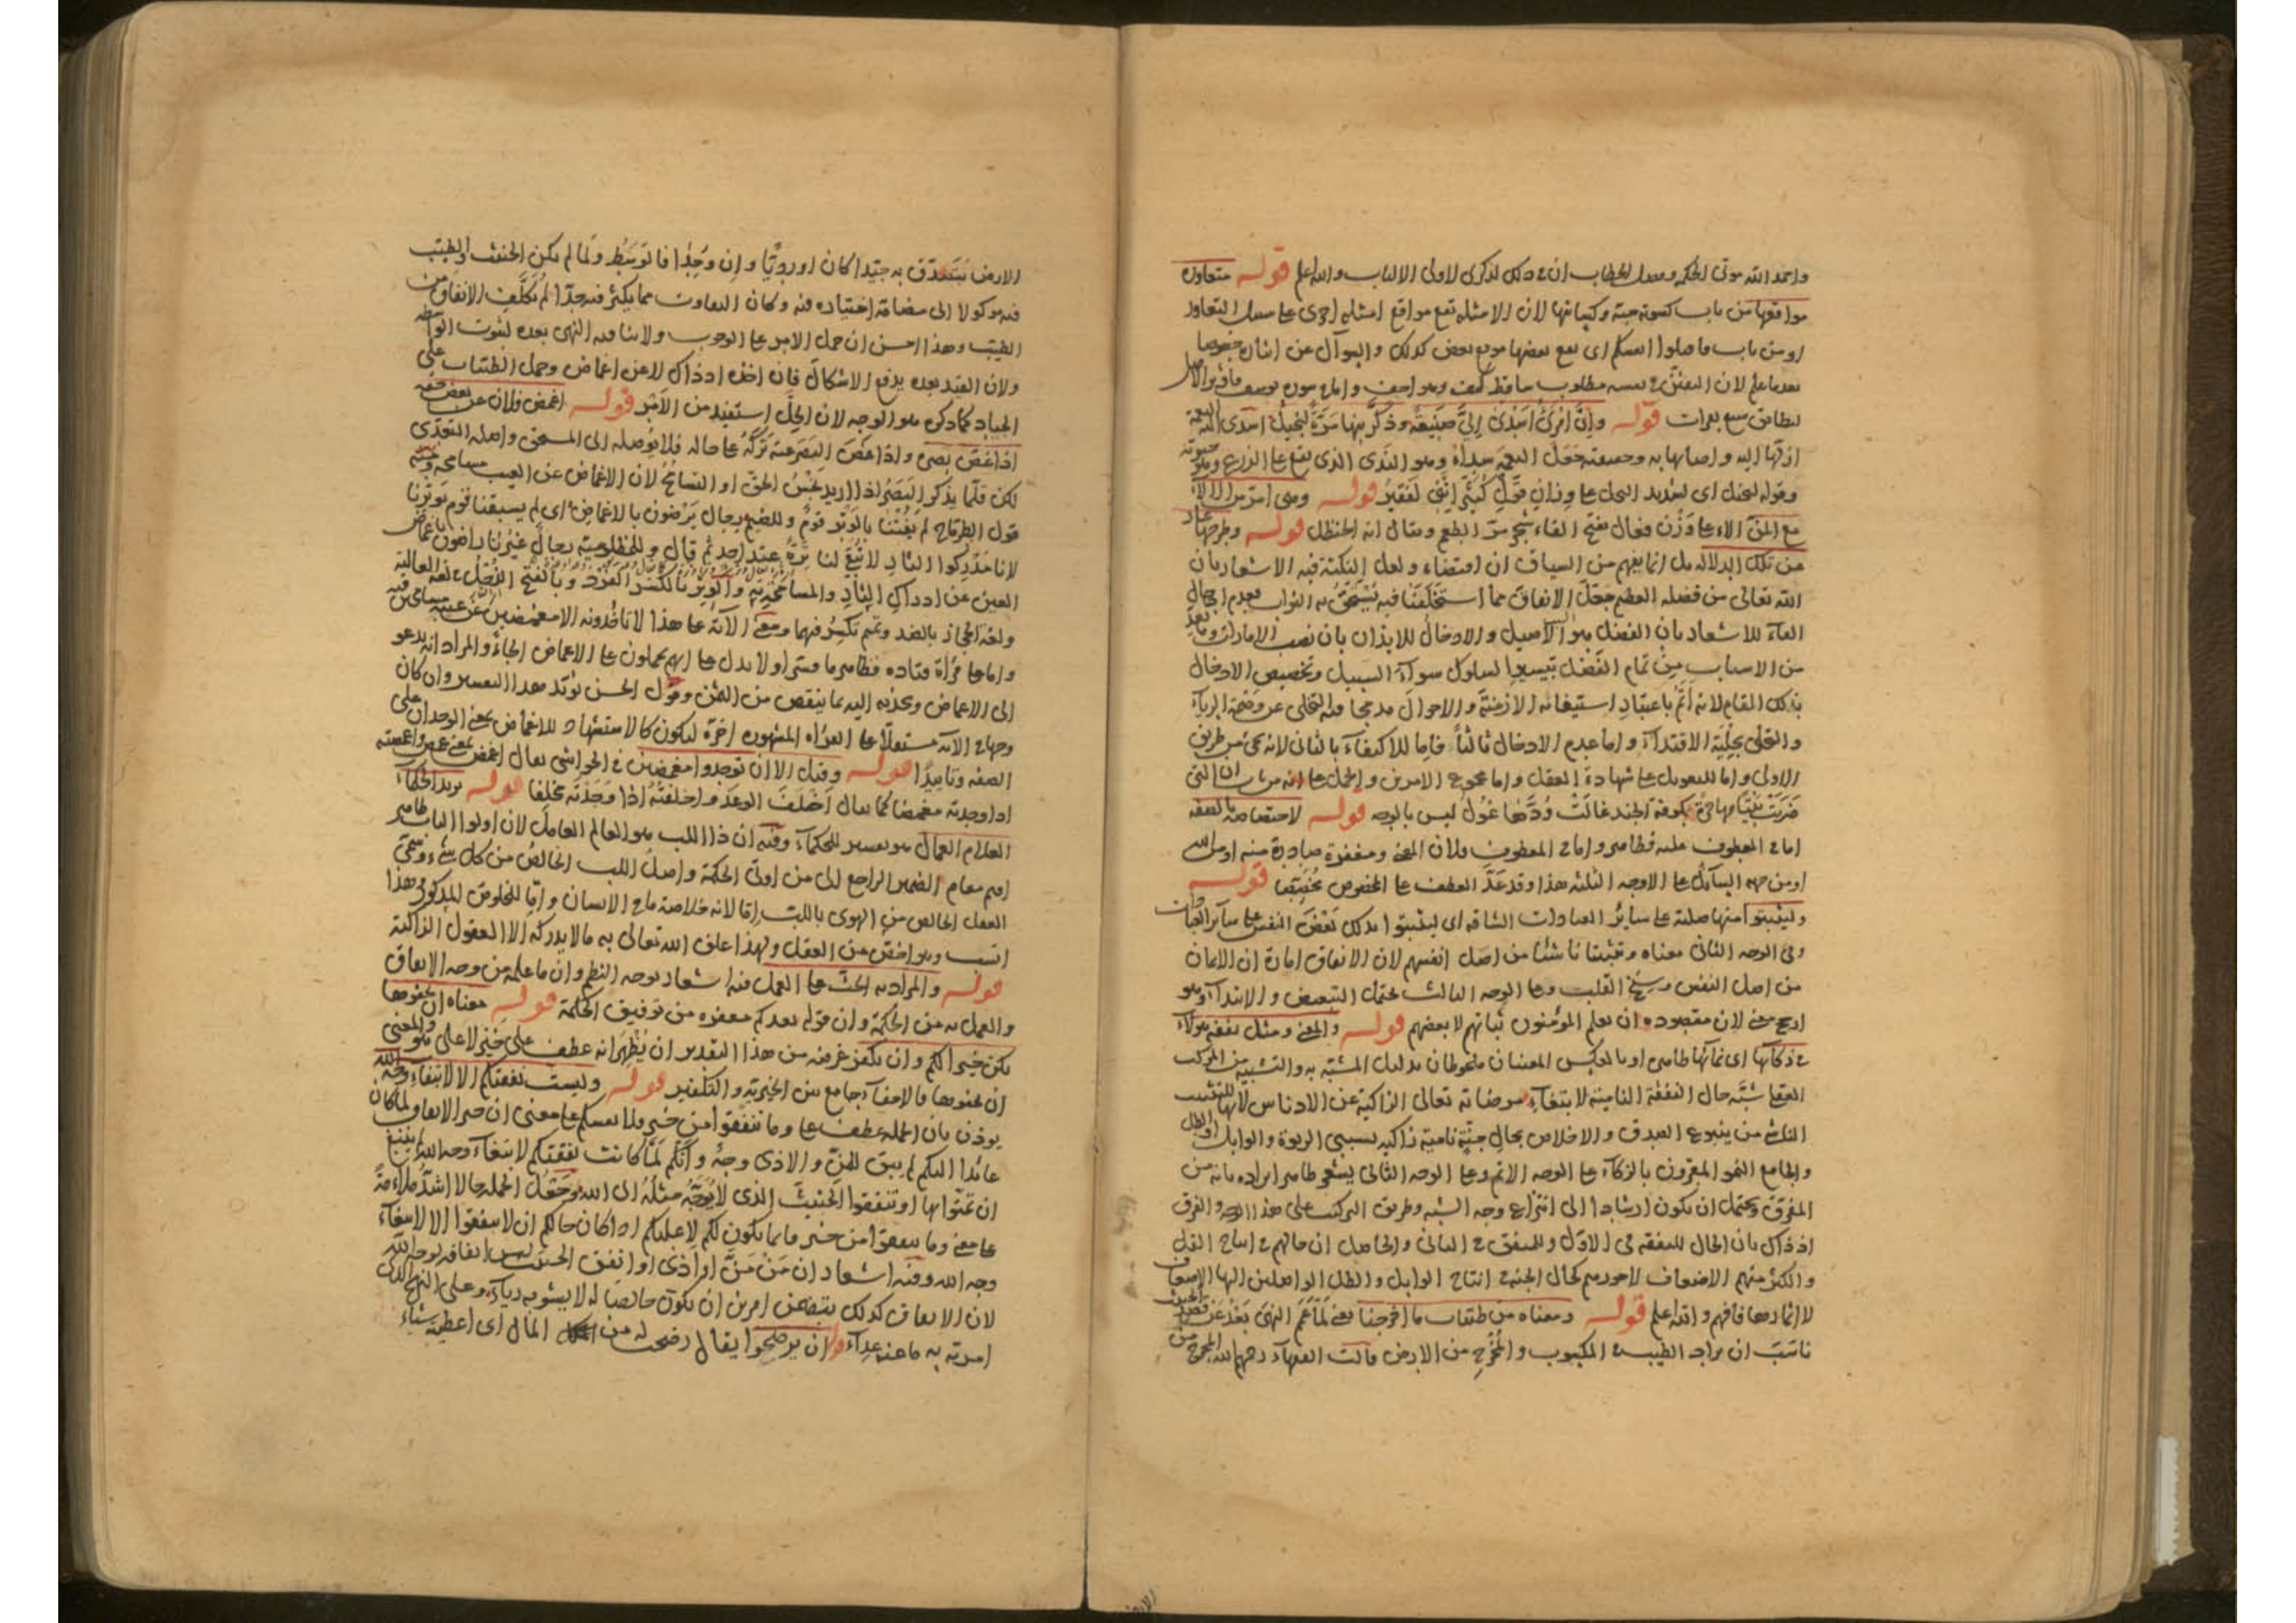 واحمد الله موتى الحكمة وفصل الخطاب ان في ذلك لذكرى لاولى الالباب والله اعلم قوله متعاوره
مواقعها من باب كسوته جبة وكبيانها لان الامثلة تقع مواقع امثلة اخرى على سبيل التعاور
بعدما علم لان
لطامن سبع بعرات قوله وان امرئ اسدى الى صنيعة وذكرنيها مرة لبخيل اسدى اليه النعمة
ازلها اليه واصابها به وحقيقته جعل النعمة سداة وهو الندى الذى يقع على الزرع
وقوله لبخيل اى لشديد البخل على وزان قول كثير قوله وهى امر من الالاء
مع المن الالاء على وزن فعال بفتح الفاء شجر مر الطعم ويقال انه الحنظل قوله وطرحها
من تلك الدلالة بل انما يفهم من السياق ان اقتضاه ولعل النكتة فيه الاشعار بان
الله تعالى من فضله العظيم جعل الانفاق مما استخلفنا فيه يستحق به الثواب فعدم ادخال
الفاء للاشعار بان الفضل هو الاصيل والادخال للايذان بان نصب الامارات
من الاسباب من تمام الفضل تيسيرا لسلوك سواء السبيل وتخصيص الادخال
بذلك المقام لانه اتم باعتبار استيعابه الازمنة والاحوال مدمجا فيه التخلى عن وصمة الرياء
والتحلى بحلية الاقتداء واما عدم الادخال ثالثا فاما للاكتفاء بالثانى لانه يجئ من طريق
الاولى واما للتعويل على شهادة العقل واما مجموع الامرين والحمل على انه من باب ان التى
ضربت بيتا مهاجرة بكوفة الجند غالت ودها غول ليس بالوجه قوله لاختصاصه بالصفة
اما فى المعطوف عليه فظاهر واما فى المعطوف فلان المعنى ومغفرة صادرة منه او من الله
او من جهة السائل على الاوجه الثلثة هذا وقد عد العطف على المخصوص مخصصا قوله
وليثبتوا منها صلبة على سائر العبادات الشاقة اى ليثبتوا بذلك بعض النفس على سائر العبادات
وفى الوجه الثانى معناه وتثبيتا ناشئا من اصل انفسهم لان الانفاق امارة ان الايمان
من اصل النفس وسنخ القلب وعلى الوجه الثالث يحتمل التبعيض والابتداء وهو
ارجح معنى لان مقصوده ان يعلم المؤمنون ثباتهم لا بعضهم قوله والمعنى ومثل نفقة هؤلاء
فى زكائها اى نمائها ظاهر او بالعكس المعنيان ملحوظان بدليل المشبه به والتشبيه من المركب
العقلى شبه حال النفقة النامية لابتغاء مرضاته تعالى الزاكية عن الادناس لانها للتثبيت
الناشئ من ينبوع الصدق والاخلاص بحال جنة نامية زاكية بسببى الربوة والوابل او الطل
والجامع النمو المقرون بالزكاء على الوجه الاتم وعلى الوجه الثانى يشعر ظاهر ايراده بانه من
المفرق ويحتمل ان يكون ارشادا الى انتزاع وجه الشبه وطريق التركيب على هذا الوجه والفرق
اذ ذاك بان الحال للنفقة فى الاول وللمنفق فى الثانى والحاصل ان حالهم فى انتاج القل
والكثر منهم الاضعاف لاجورهم كحال الجنة فى انتاج الوابل والطل الواصلين اليها الاضعاف
لاثمارها فافهم والله اعلم قوله ومعناه من طيبات ما اخرجنا يعنى لما عم النهى بعد عن قصد الخبيث
ناسب ان يراد الطيب فى المكسوب والمخرج من الارض قالت الفقهاء رحمهم الله المخرج من
الارض يتصدق به جيدا كان او رديا وان وجدا فالتوسط ولما لم يكن الخبيث والطيب
فيه موكولا الى مضافة اختياره فيه وكان التفاوت مما يكثر فيه جدا لم يكلف الانفاق من
الطيب وهذا احسن ان حمل الامر على الوجوب ولا ينافيه النهى بعده لثبوت الواسطة
ولان القيد بعده يدفع الاشكال فان اخذه اذ ذاك لا عن اغماض وحمل الطيبات على
الجياد كما ذكره هو الوجه لان الحل استفيد من الامر قوله اغمض فلان عن بعض حقه
اذا غض بصره واذا غض البصر عنه تركه على حاله فلا يوصله الى المستحق واصله التعدى
لكن قلما يذكر البصر اذا اريد بخس الحق او التسامح لان الاغماض عن العيب مسامحة
قول الطرماح لم يفتنا بالوتر قوم وللضيم رجال يرضون بالاغماض اى لم يسبقنا قوم بوترنا
لانا مدركوا الثار لا تبقى لنا ترة عند احد ثم قال وللمظلومية رجال غيرنا راضون باغماض
العين عن ادراك الثار والمسامحة به والوتر بالكسر الفرد وبالفتح الذحل فى لغة العالية
ولغة الحجاز بالضد وتميم تكسر فيهما ومعنى الآية على هذا لا تاخذونه الا مغمضين عن عيبه مسامحين فيه
واما على قراءة قتادة فظاهر ما فسر اولا يدل على انهم يحملون على الاغماض الجاء والمراد انه يدعو
الى الاغماض ويجذبه اليه بما ينقص من الثمن وقول الحسن يؤيد هذا التفسير وان كان
الصفة وتاييدا قوله وقيل الا ان توجدوا مغمضين فى الحواشى يقال اغمض
اذا وجدته مغمضا كما يقال اخلف الوعد واخلفته اذا وجدته مخلفا قوله يريد الحكماء
العلام العمال هو تفسير للحكماء وفيه ان ذا اللب هو العالم العامل لان اولوا الالباب ظاهر
اقيم مقام الضمير الراجع الى من اوتى الحكمة واصل اللب الخالص من كل شئ وسمى
العقل الخالص من الهوى باللب اما لانه خلاصة ما فى الانسان واما للخلوص المذكور وهذا
انسب وهو اخص من العقل ولهذا علق الله تعالى به ما لا يدركه الا العقول الزاكية
قوله والمراد به الحث على العمل فيه اشعار بوجه النظم وان ما علمه من وجه الانفاق
والعمل به من الحكمة وان قوله يعدكم مغفرة من توفيق الحكمة قوله معناه ان تخفوها
يكن خيرا لكم وان نكفر غرضه من هذا التقدير ان يظهر انه عطف على خير لا على هو والمعنى
ان تخفوها فالاخفاء جامع بين الخيرية والتكفير قوله وليست نفقتكم الا لابتغاء وجه الله
يوذن بان الجملة عطف على وما تنفقوا من خير فلانفسكم على معنى ان خير الانفاق لما كان
عائدا اليكم لم يبق للمن والاذى وجه وانكم لما كانت نفقتكم لابتغاء وجه الله لم ينبغ
ان تمنوا بها او تنفقوا الخبيث الذى لا يوجه مثله الى الله وجعل الجملة حالا اشد ملاءمة
على معنى وما تنفقوا من خير فانما يكون لكم لا عليكم اذا كان حالكم ان لا تنفقوا الا لابتغاء
وجه الله وفيه اشعار ان من من او اذى او انفق الخبيث ليس انفاقه لوجه الله
لان الانفاق كذلك يتضمن امرين ان يكون خالصا له لا يشوبه رياء وعلى النهج الذى
امرته به ما عنه قوله ان يرضخوا يقال رضخت له من المال اى اعطيته شيئا